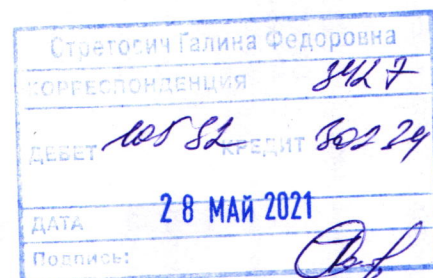 Стретович Галина Федоровна
КОРРЕСПОНДЕНЦИЯ 8427
ДЕБЕТ 105 32 КРЕДИТ 302 34
ДАТА 28 МАЙ 2021
Подпись: